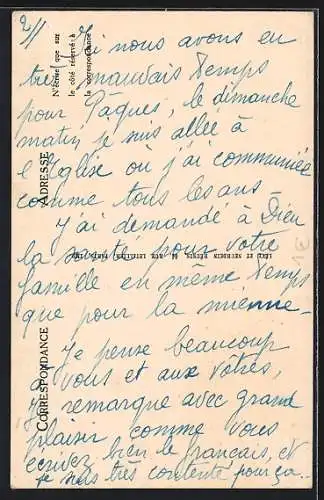 2/
Ici nous avons eu
très mauvais temps
pour Pâques, le dimanche
matin je suis allée à
l'Eglise où j'ai communiée
comme tous les ans -
J'ai demandé à Dieu
la santé pour votre
famille en même temps
que pour la mienne -
Je pense beaucoup
à vous et aux vôtres,
Je remarque avec grand
plaisir comme vous
écrivez bien le français, et
je suis très contente pour ça.-
CORRESPONDANCE
ADRESSE
N'écrire que sur
le côté réservé à
la correspondance
1€